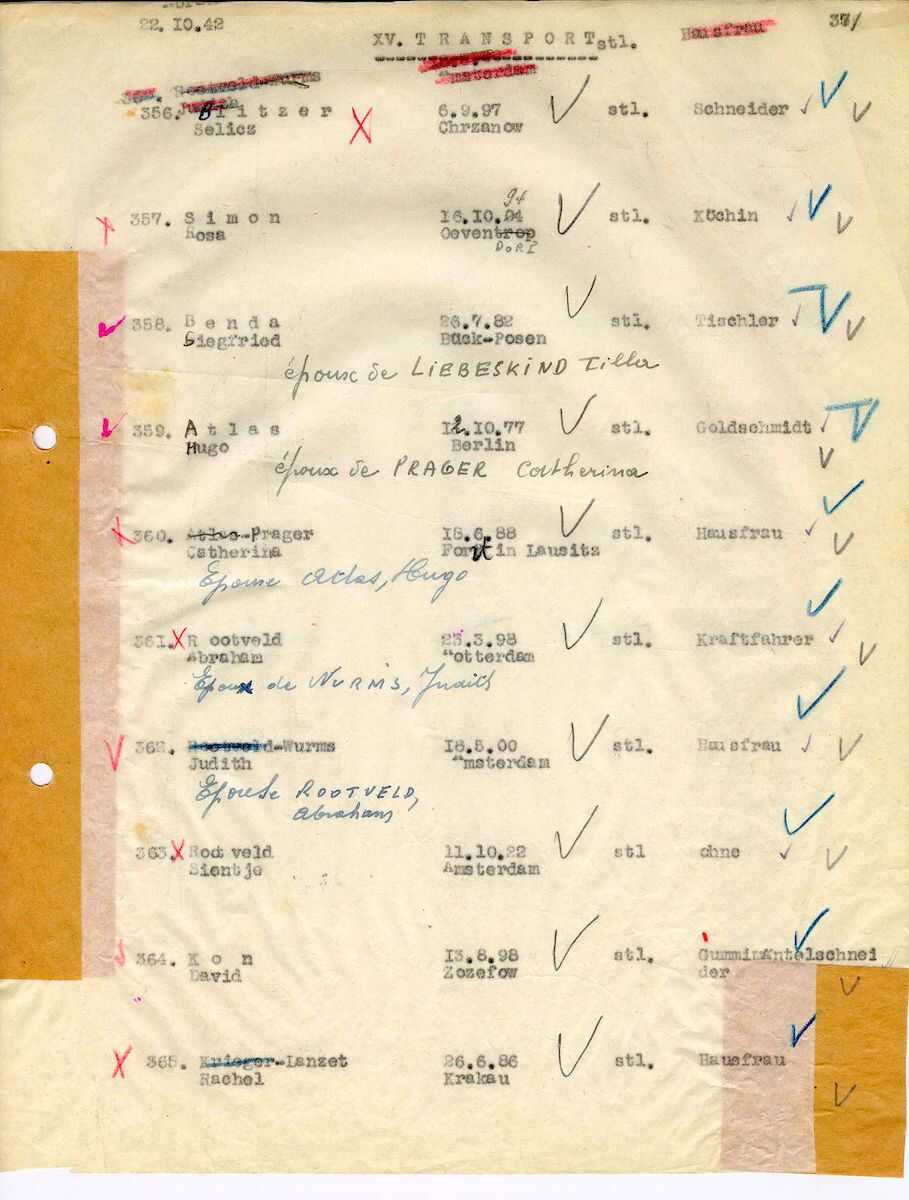 22.10.42
XV. TRANSPORT stl. Hausfrau 37/
Amsterdam
Rootveld-Wurms
356. Blitzer 6.9.97 stl. Schneider
Selicz Chrzanow
94
357. Simon 16.10.04 stl. Köchin
Rosa Oeventrop
DoRI
358. Benda 26.7.82 stl. Tischler
Siegfried Bück-Posen
époux de LIEBESKIND Tilla
359. Atlas 12.10.77 stl. Goldschmidt
Hugo Berlin
époux de PRAGER Catherina
360. Atlas-Prager 18.6.88 stl. Hausfrau
Catherina Forst in Lausitz
Epouse Atlas, Hugo
361. Rootveld 23.3.98 stl. Kraftfahrer
Abraham "otterdam
Epoux de WURMS, Judith
362. Rootveld-Wurms 18.5.00 stl. Hausfrau
Judith "msterdam
Epouse ROOTVELD,
Abraham
363. Rootveld 11.10.22 stl ohne
Sientje Amsterdam
364. Kon 13.8.98 stl. Gummimäntelschnei
David Zozefow der
365. Krieger-Lanzet 26.6.86 stl. Hausfrau
Rachel Krakau